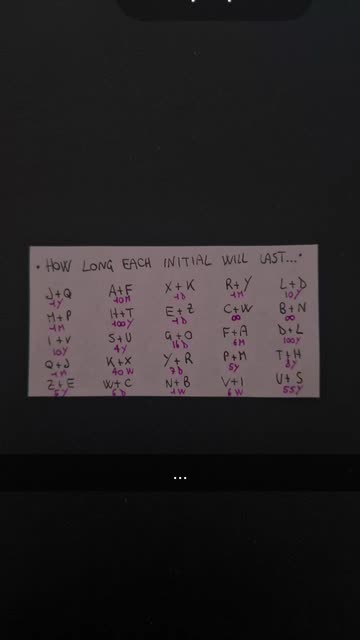 • HOW LONG EACH INITIAL WILL LAST...•
J+Q A+F X+K R+Y L+D
1Y 10M 1D 1M 10Y
M+P H+T E+Z C+W B+N
1M 100Y 1D ∞ ∞
I+V S+U G+O F+A D+L
10Y 4Y 16D 6M 100Y
Q+J K+X Y+R P+M T+H
1M 40W 7D 5Y
Z+E W+C N+B V+I U+S
1W 6W 55Y
...